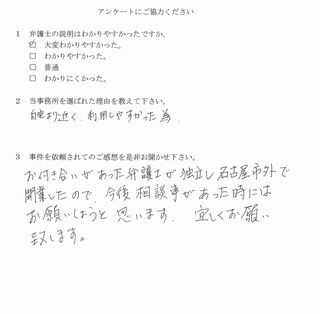 アンケートにご協力ください
1 弁護士の説明はわかりやすかったですか。
☑ 大変わかりやすかった。
□ わかりやすかった。
□ 普通
□ わかりにくかった。
2 当事務所を選ばれた理由を教えて下さい。
自宅より近く、利用しやすかった為。
3 事件を依頼されてのご感想を是非お聞かせ下さい。
お付き合いがあった弁護士が独立し名古屋市外で
開業したので、今後相談事があった時には
お願いしようと思います。 宜しくお願い
致します。